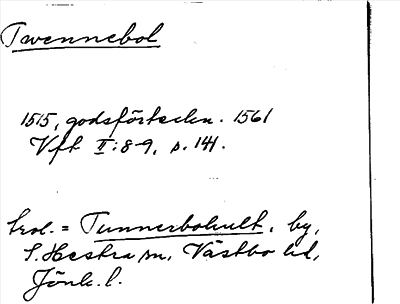 Twennebol
1515, godsförteckn. 1561
Vft II:8-9, s. 141.
trol. = Tunnerbohult, by,
S. Hestra sn, Västbo hd,
Jönk. l.